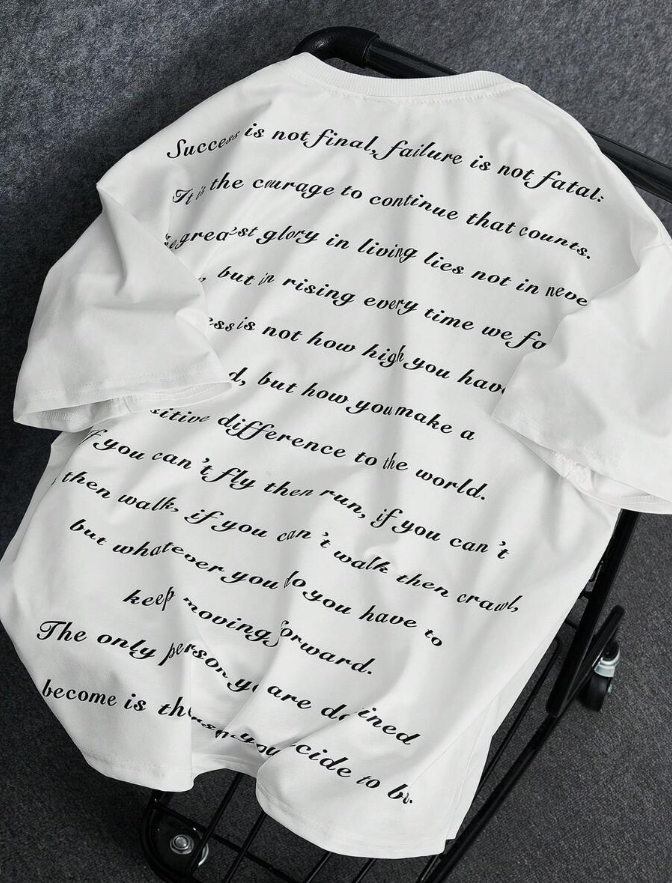 Success is not final, failure is not fatal:
It is the courage to continue that counts.
greatest glory in living lies not in neve
but in rising every time we fa
ess is not how high you have
d, but how you make a
sitive difference to the world.
If you can't fly then run, if you can't
then walk, if you can't walk then crawl,
but whatever you do you have to
keep moving forward.
The only person you are de ined
become is the person you cide to be.